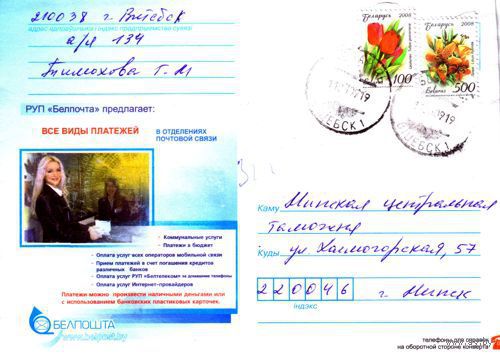 210038 г. Витебск
адрес адпраўшчыка і індэкс прадпрыемства сувязі
а/я 134
Тимохова Г. М
РУП «Белпочта» предлагает:
ВСЕ ВИДЫ ПЛАТЕЖЕЙ
В ОТДЕЛЕНИЯХ
ПОЧТОВОЙ СВЯЗИ
- Коммунальные услуги
- Платежи в бюджет
- Оплата услуг всех операторов мобильной связи
- Прием платежей в счет погашения кредитов
различных банков
- Оплата услуг РУП «Белтелеком» за домашние телефоны
- Оплата услуг Интернет-провайдеров
Платежи можно произвести наличными деньгами или
с использованием банковских пластиковых карточек.
БЕЛПОШТА
www.belpost.by
Беларусь 2008
100
Беларусь 2008
Belarus
500
19
ВИТЕБСК 1
Каму Минская центральная
таможня
Куды ул. Холмогорская, 57
220046 г. Минск
Індэкс
телефоны для справок
на оборотной стороне конверта